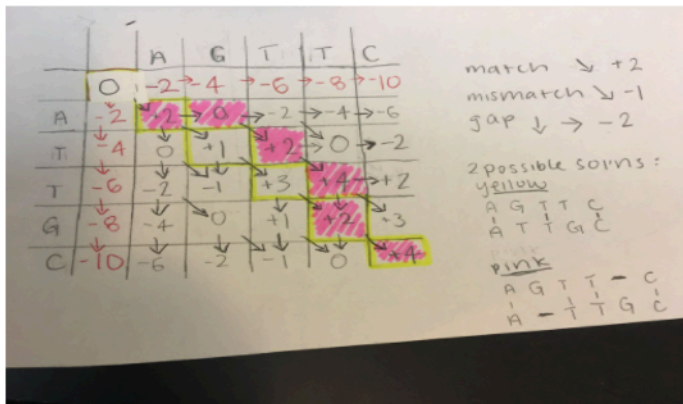 A G T T C
0 -2 → -4 → -6 → -8 → -10
A -2 +2 → 0 → -2 → -4 → -6
T -4 0 +1 +2 → 0 → -2
T -6 -2 -1 +3 +4 → +2
G -8 -4 0 +1 +2 +3
C -10 -6 -2 -1 0 +4
match ↘ +2
mismatch ↘ -1
gap ↓ → -2
2 possible solns:
yellow
A G T T C
A T T G C
pink
A G T T - C
A - T T G C